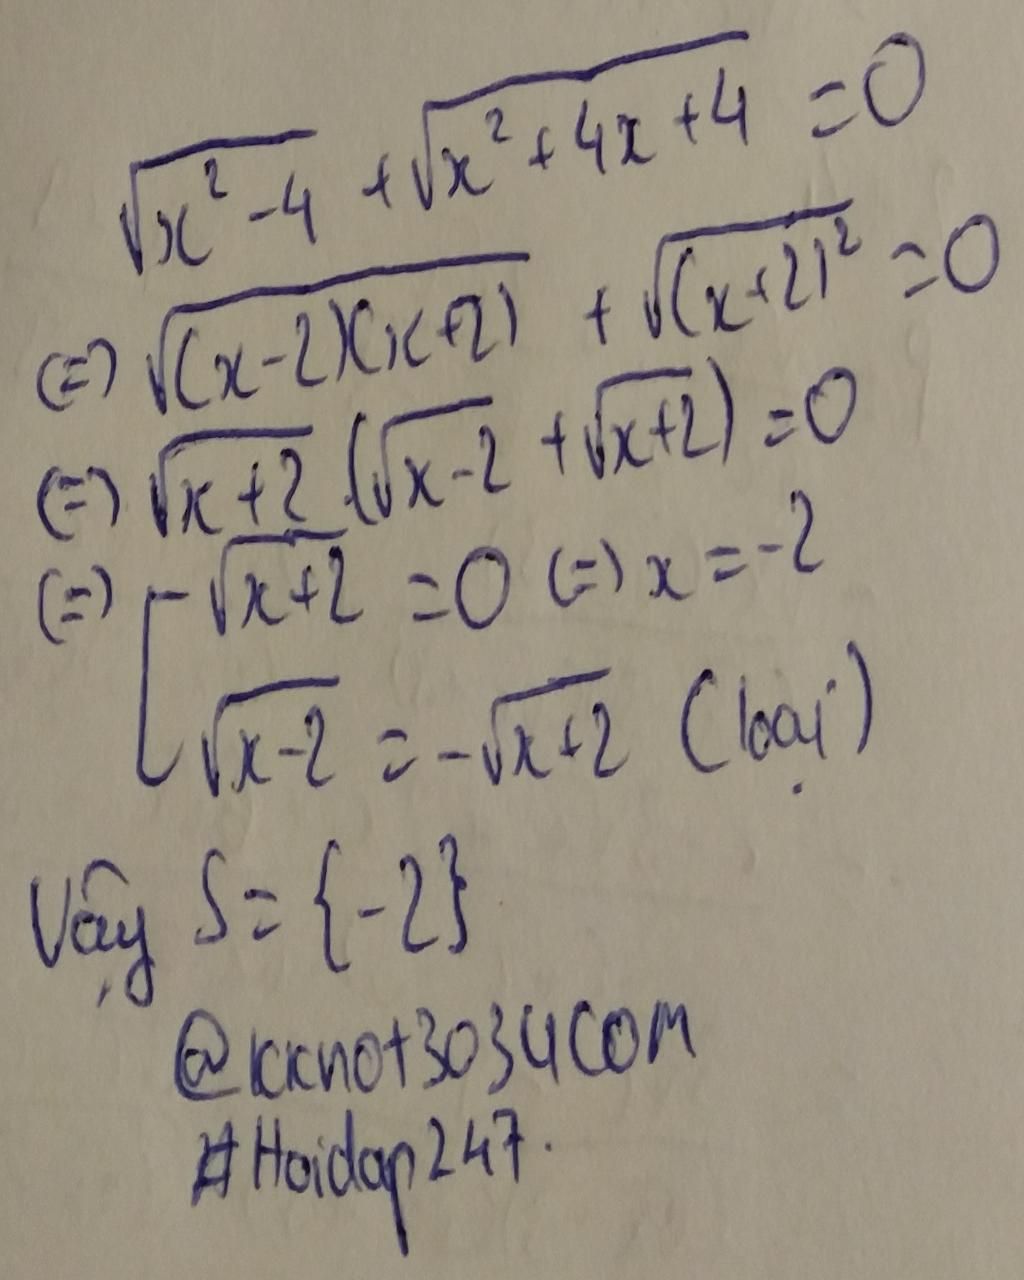 √(x² - 4) + √(x² + 4x + 4) = 0
(=) √((x-2)(x+2)) + √((x+2)²) = 0
(=) √(x+2) . (√(x-2) + √(x+2)) = 0
(=) [ √(x+2) = 0 (=) x = -2
√(x-2) = -√(x+2) (loại)
Vậy S = {-2}
@kknot3034COM
#Hoidap247.